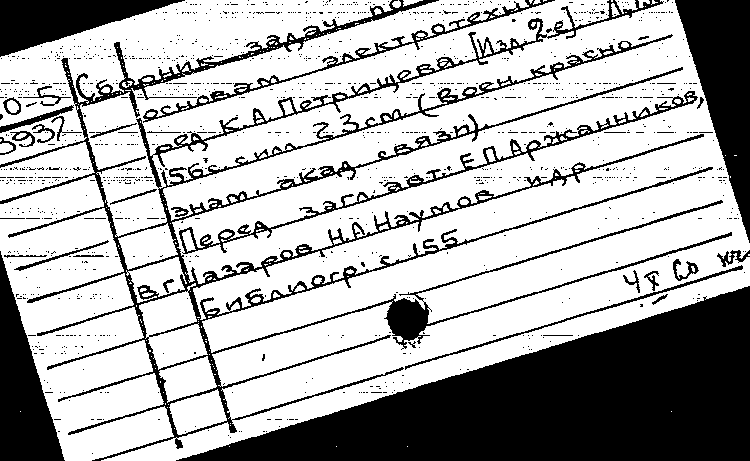 Сборник задач по
О-5 основам электротехни
3937 ред. К.А. Петрищева. [Изд. 2-е]. Л,
156 с. с илл. 23 см. (Воен. красно-
знам. акад. связи).
Перед загл. авт.: Е.П. Аржанников,
В.Г. Назаров, Н.А. Наумов и др
Библиогр: с. 155.
4 X 60